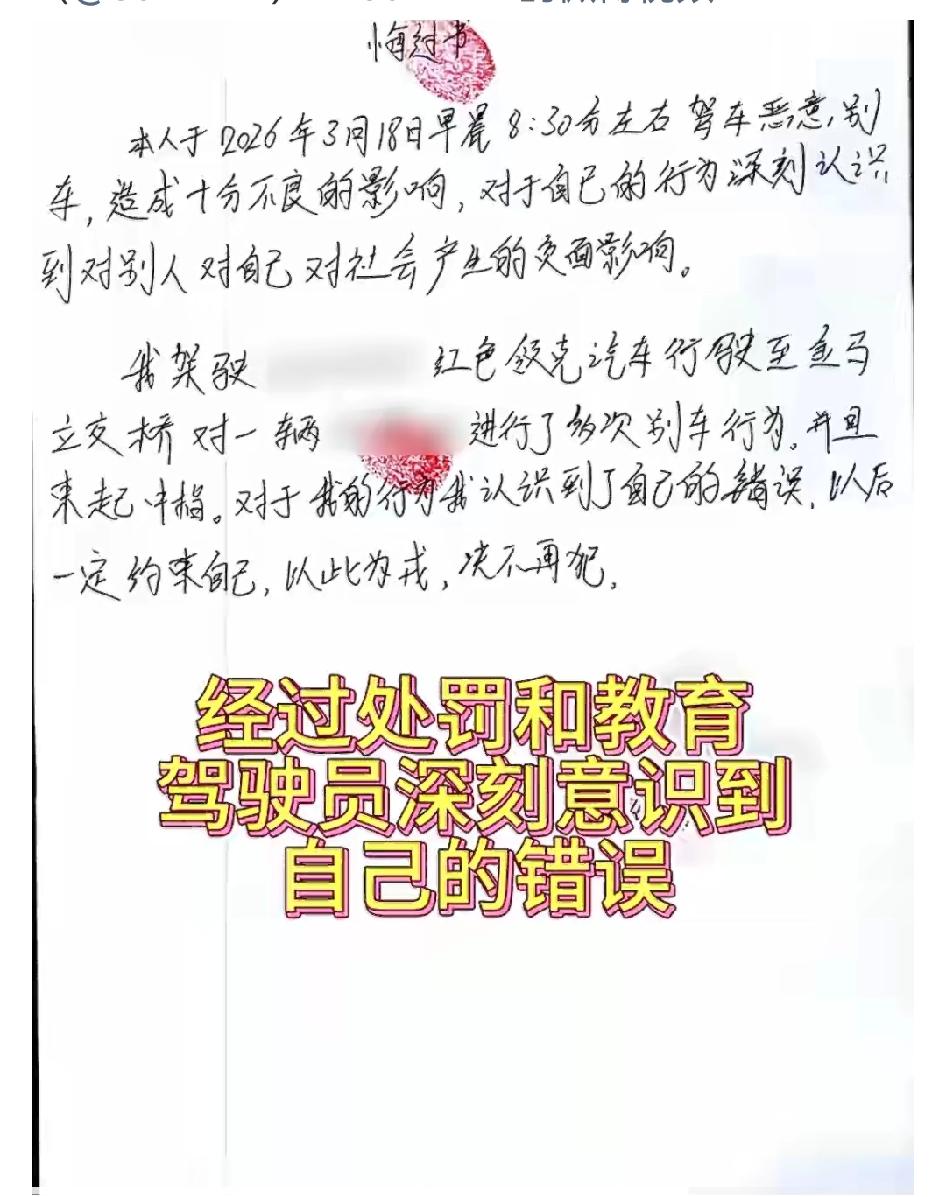 悔过书
本人于2026年3月18日早晨8:30分左右驾车恶意别
车,造成十分不良的影响,对于自己的行为深刻认识
到对别人对自己对社会产生的负面影响。
我驾驶 红色领克汽车行驶至金马
立交桥对一辆 进行了多次别车行为,并且
束起中指。对于我的行为我认识到了自己的错误,以后
一定约束自己,以此为戒,决不再犯。
经过处罚和教育
驾驶员深刻意识到
自己的错误